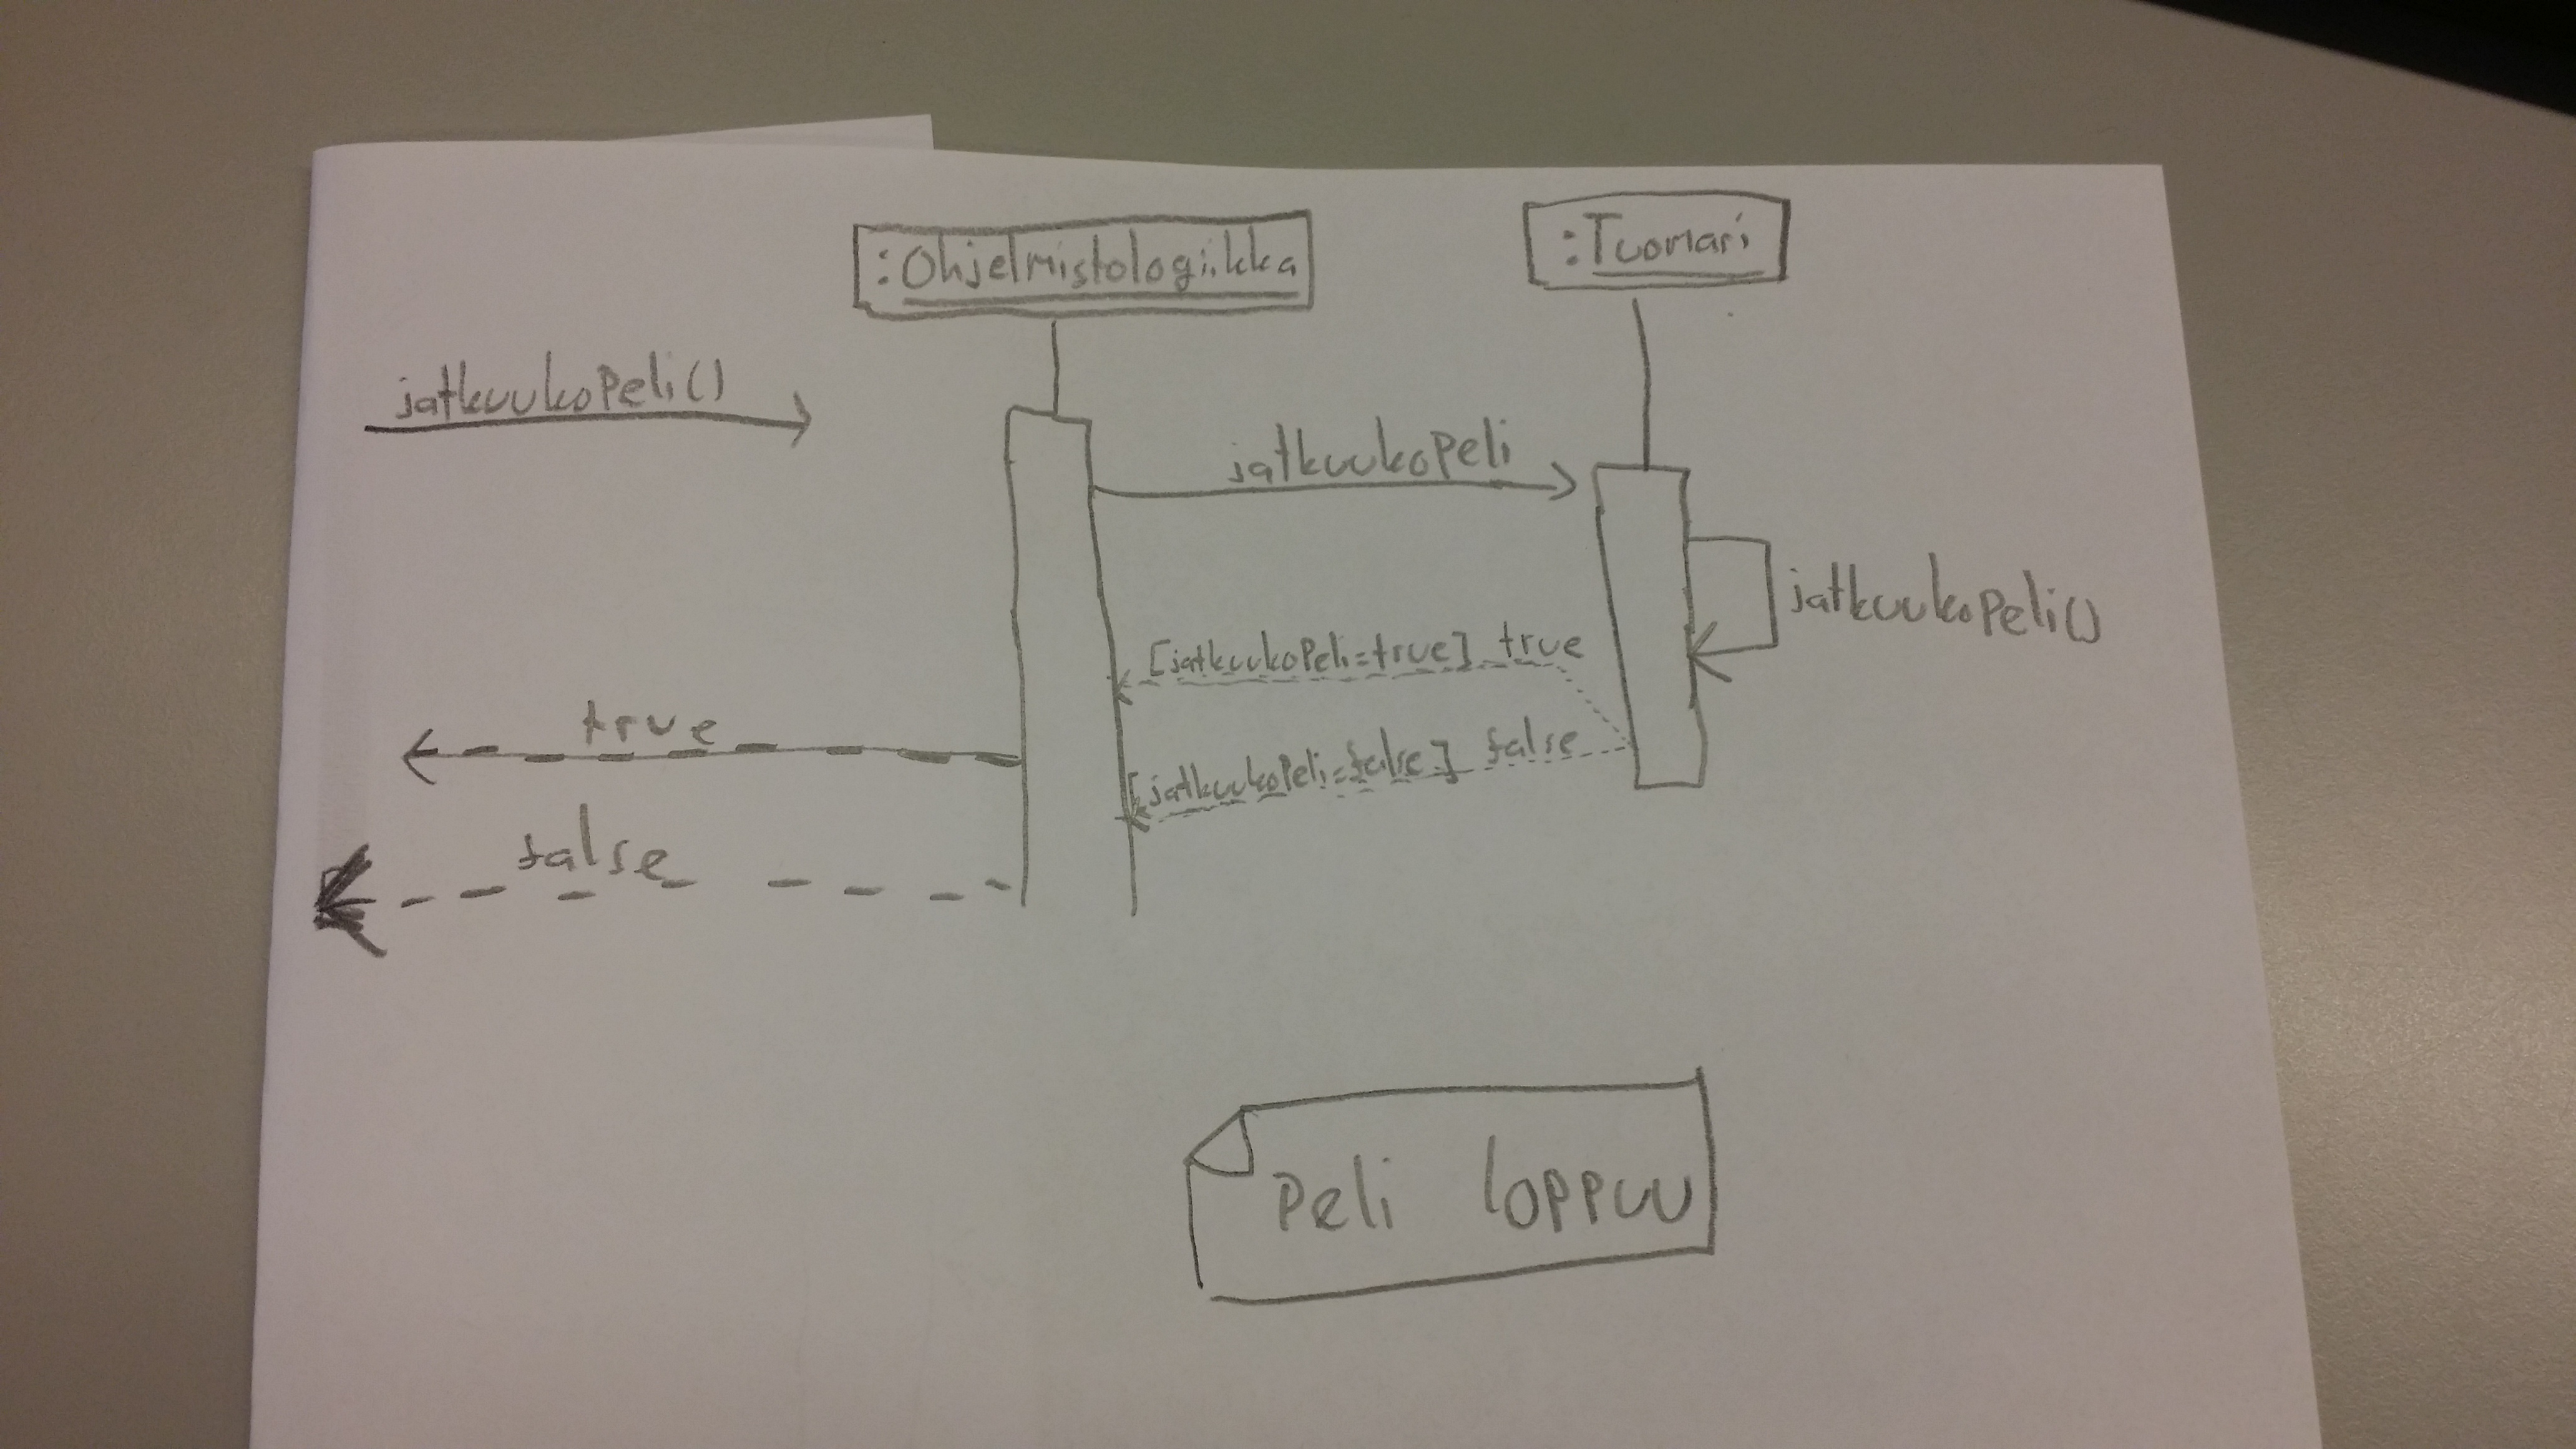 :Ohjelmistologiikka
:Tuomari
jatkuukoPeli()
jatkuukoPeli
jatkuukoPeli()
[jatkuukoPeli=true] true
true
[jatkuukoPeli=false] false
false
Peli loppuu